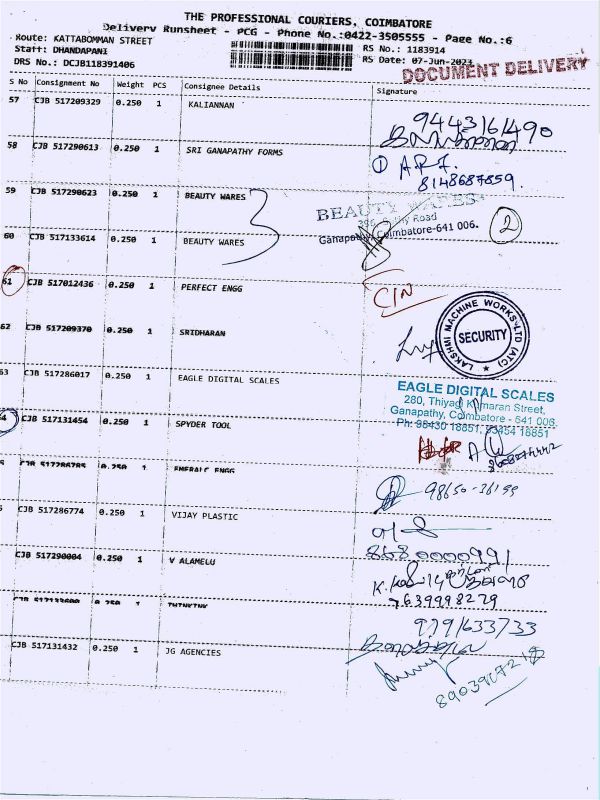 THE PROFESSIONAL COURIERS, COIMBATORE
Delivery Runsheet - PCG - Phone No.:0422-3505555 - Page No.:6
Route: KATTABOMMAN STREET
RS No.: 1183914
Staff: DHANDAPANI
RS Date: 07-Jun-2023
DRS No.: DCJB118391406
DOCUMENT DELIVERY
S No Consignment No Weight PCS Consignee Details Signature
57 CJB 517209329 0.250 1 KALIANNAN
9443161490
58 CJB 517290613 0.250 1 SRI GANAPATHY FORMS
1 A.P.F.
8148687659.
59 CJB 517290623 0.250 1 BEAUTY WARES
BEAUTY WARES
Road
Ganapathy, Coimbatore-641 006.
2
60 CJB 517133614 0.250 1 BEAUTY WARES
61 CJB 517012436 0.250 1 PERFECT ENGG
CIN
62 CJB 517209370 0.250 1 SRIDHARAN
LAKSHMI MACHINE WORKS LTD (ATC)
SECURITY
63 CJB 517286017 0.250 1 EAGLE DIGITAL SCALES
EAGLE DIGITAL SCALES
280, Thiyagi Kumaran Street,
Ganapathy, Coimbatore - 641 006.
Ph: 98430 18851, 93454 18851
64 CJB 517131454 0.250 1 SPYDER TOOL
CJB 517286785 0.250 1 EMERALC ENGG
98650-36199
CJB 517286774 0.250 1 VIJAY PLASTIC
8680000991
CJB 517290004 0.250 1 V ALAMELU
7639998279
CJB 517133600 0.250 1 THINKINK
9791633733
CJB 517131432 0.250 1 JG AGENCIES